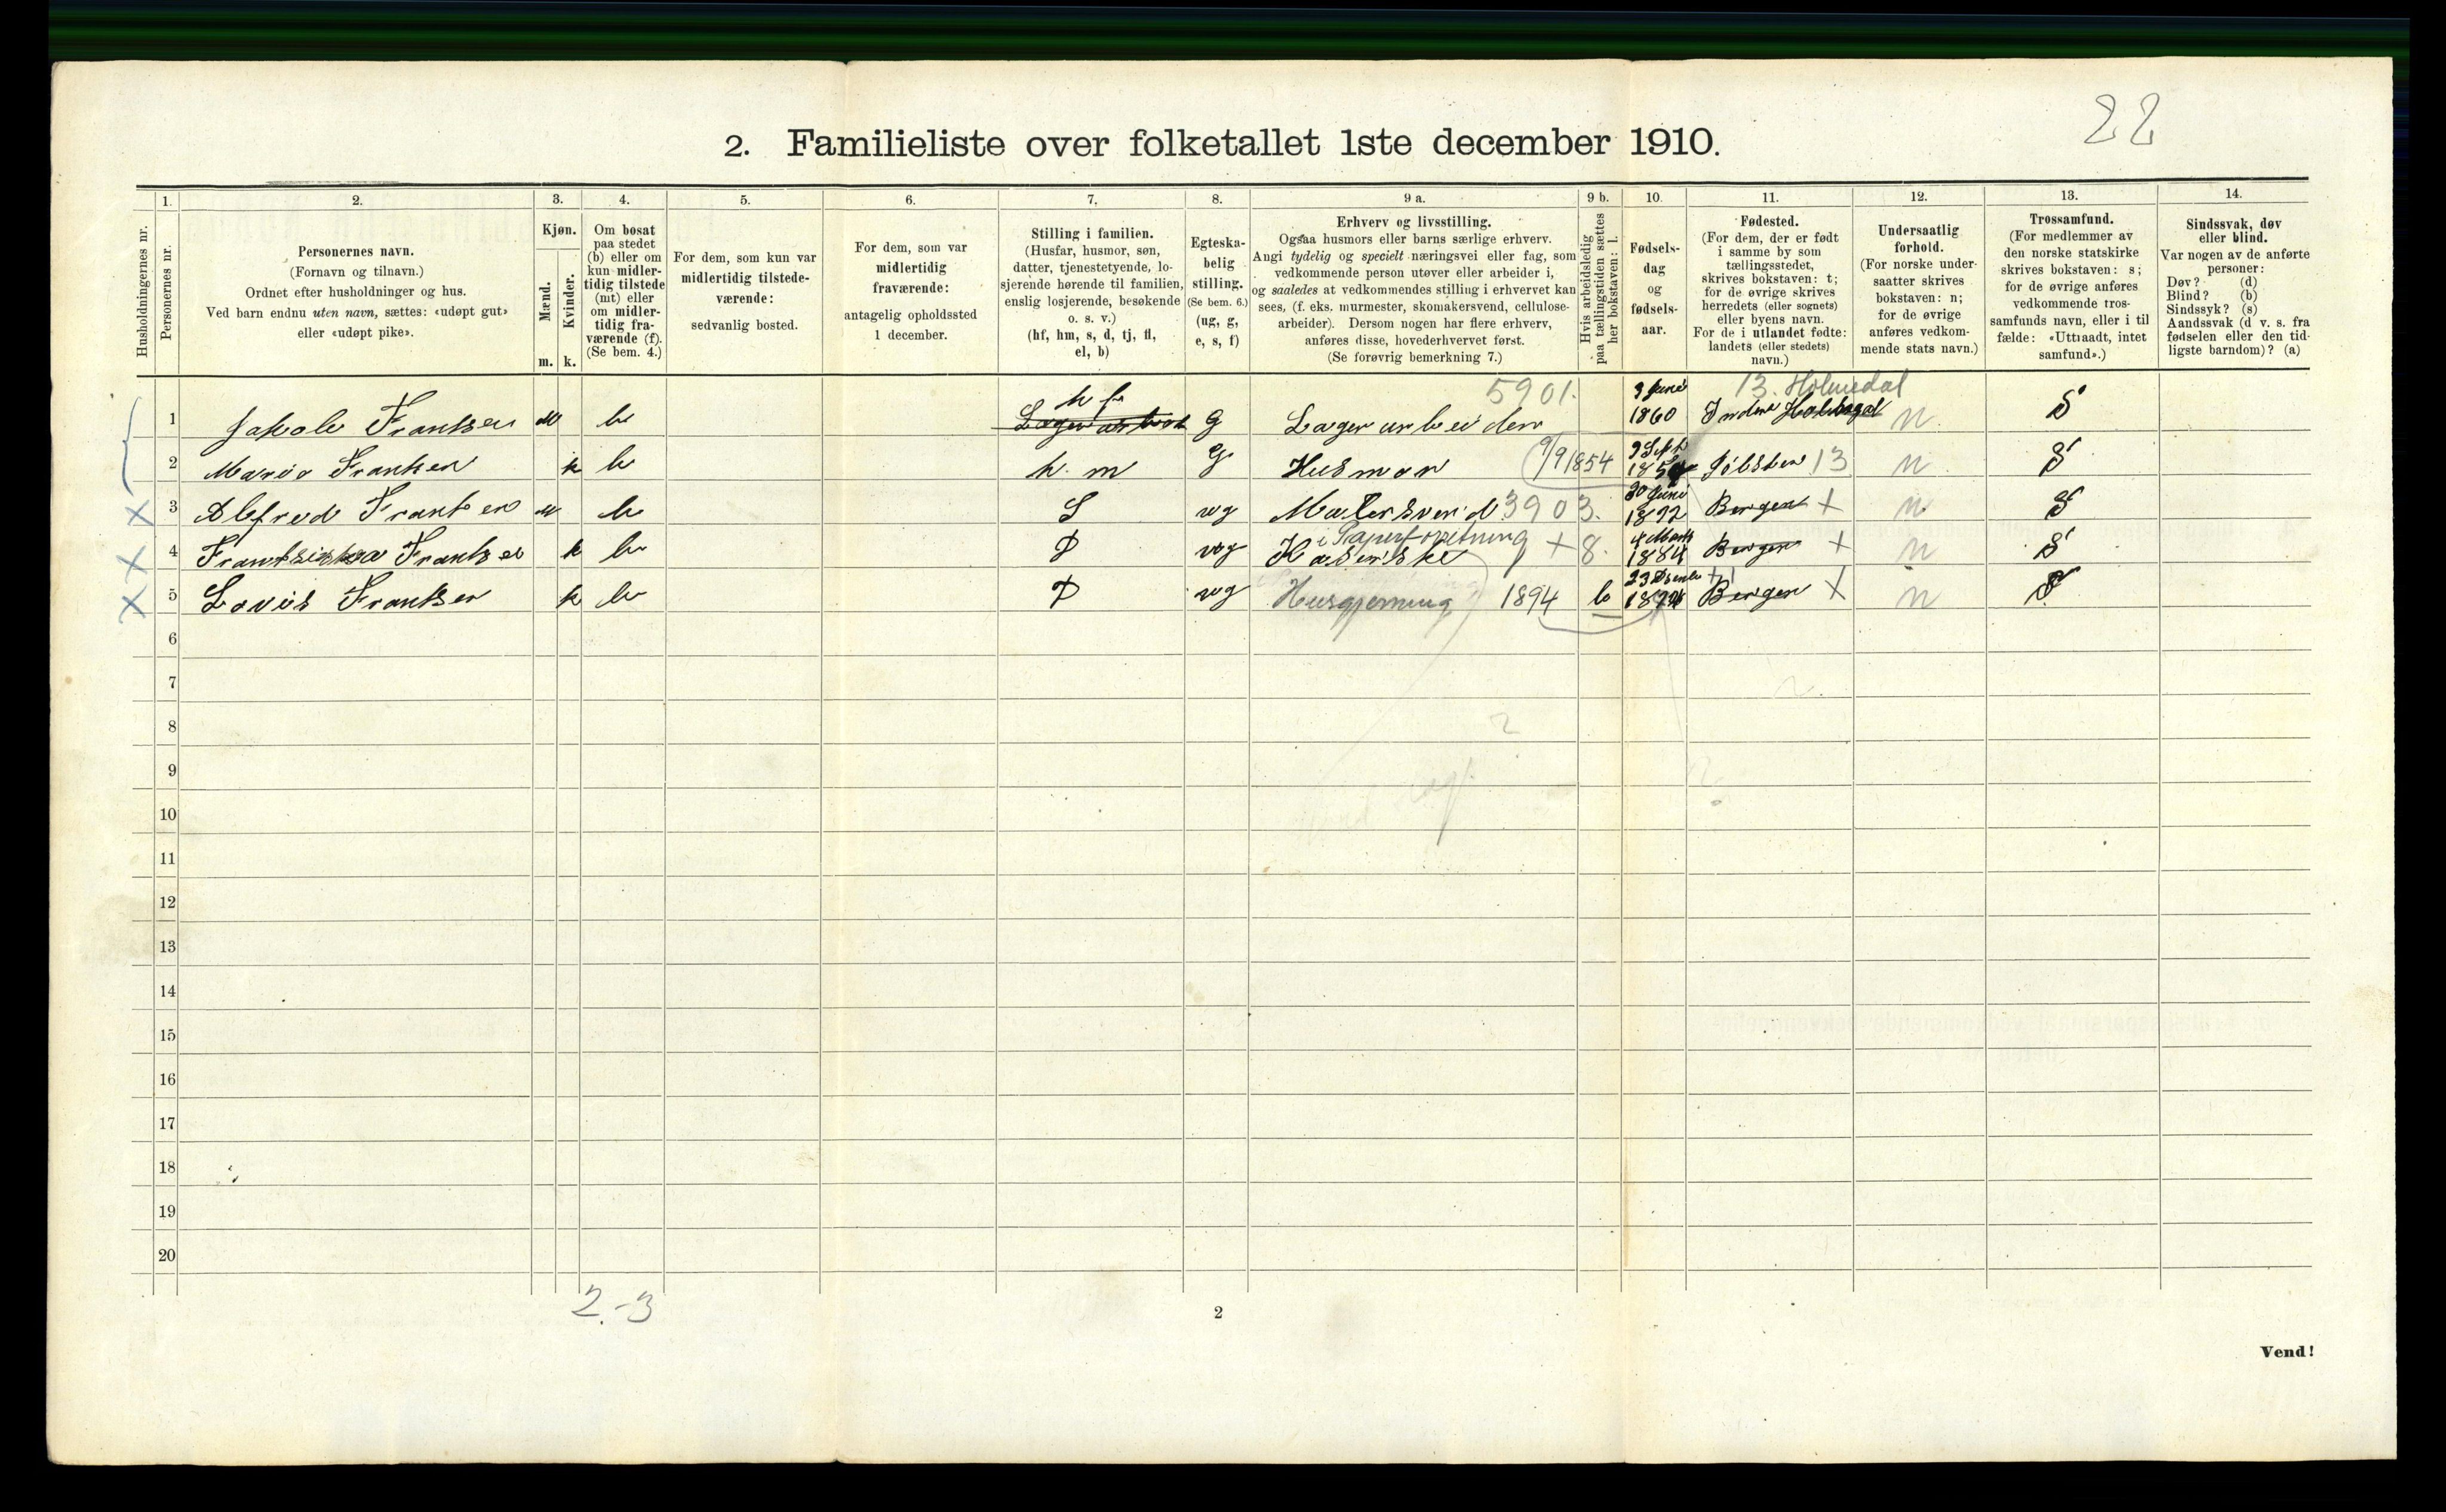 22
2. Familieliste over folketallet 1ste december 1910.
1. 2. 3. 4. 5. 6. 7. 8. 9 a. 9 b. 10. 11. 12. 13. 14.
Husholdningernes nr.
Personernes nr.
Personernes navn.
(Fornavn og tilnavn.)
Ordnet efter husholdninger og hus.
Ved barn endnu uten navn, sættes: «udøpt gut»
eller «udøpt pike».
Kjøn.
Mænd.
Kvinder.
m. k.
Om bosat
paa stedet
(b) eller om
kun midler-
tidig tilstede
(mt) eller
om midler-
tidig fra-
værende (f).
(Se bem. 4.)
For dem, som kun var
midlertidig tilstede-
værende:
sedvanlig bosted.
For dem, som var
midlertidig
fraværende:
antagelig opholdssted
1 december.
Stilling i familien.
(Husfar, husmor, søn,
datter, tjenestetyende, lo-
sjerende hørende til familien,
enslig losjerende, besøkende
o. s. v.)
(hf, hm, s, d, tj, fl,
el, b)
Egteska-
belig
stilling.
(Se bem. 6.)
(ug, g,
e, s, f)
Erhverv og livsstilling.
Ogsaa husmors eller barns særlige erhverv.
Angi tydelig og specielt næringsvei eller fag, som
vedkommende person utøver eller arbeider i,
og saaledes at vedkommendes stilling i erhvervet kan
sees, (f. eks. murmester, skomakersvend, cellulose-
arbeider). Dersom nogen har flere erhverv,
anføres disse, hovederhvervet først.
(Se forøvrig bemerkning 7.)
Hvis arbeidsledig
paa tællingstiden sættes
her bokstaven: l.
Fødsels-
dag
og
fødsels-
aar.
Fødested.
(For dem, der er født
i samme by som
tællingsstedet,
skrives bokstaven: t;
for de øvrige skrives
herredets (eller sognets)
eller byens navn.
For de i utlandet fødte:
landets (eller stedets)
navn.)
Undersaatlig
forhold.
(For norske under-
saatter skrives
bokstaven: n;
for de øvrige
anføres vedkom-
mende stats navn.)
Trossamfund.
(For medlemmer av
den norske statskirke
skrives bokstaven: s;
for de øvrige anføres
vedkommende tros-
samfunds navn, eller i til
fælde: «Uttraadt, intet
samfund».)
Sindssvak, døv
eller blind.
Var nogen av de anførte
personer:
Døv? (d)
Blind? (b)
Sindssyk? (s)
Aandssvak (d v. s. fra
fødselen eller den tid-
ligste barndom)? (a)
h f 5901. 3 Juni 13. Holmedal
1 Jakob Frantsen m b g Lagerarbeider 1860 Indre n S
9 Sept
2 Maria Frantsen k b h. m g Husmor 9/9 1854 Jölster 13 n S
30 Juni
X 3 Alfred Frantsen m b S ug Malersvend 3903. 1892 Bergen + n S
i Papirforretning 4 Marts
X X 4 Frantsiska Frantsen k b D ug Kaserske + 8. 1884 Bergen + n S
X X 5 Lovis Frantsen k b D ug Husgjerning 1894 Bergen + n S
6
7
8
9
10
11
12
13
14
15
16
17
18
19
20
2-3
2
Vend!